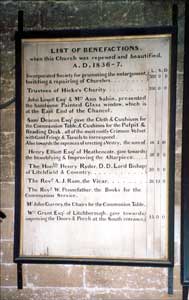 LIST OF BENEFACTIONS,
when this Church was repewed and beautified,
A.D. 1836-7.
Incorporated Society for promoting the enlargement,
building & repairing of Churches
Trustees of Hicks's Charity
John Lloyd Esqr. & Mrs. Ann Sabin, presented
the handsome Painted Glass window, which is
at the East End of the Chancel.
Saml. Deacon Esqr. gave the Cloth & Cushions for
the Communion Table, & Cushions for the Pulpit &
Reading Desk, all of the most costly Crimson Velvet
with Gold Fringe & Tassels to correspond.
Also towards the expences of erecting a Vestry, the sum of
Henry Elliott Esqr. of Heathencote, gave towards
the beautifying & Improving the Altarpiece
The Honble. Henry Ryder, D.D. Lord Bishop
of Litchfield & Coventry
The Revd. A.J. Ram, the Vicar
The Revd. W. Pennefather, the Books for the
Communion Service.
Mr. John Gurney, the Chairs for the Communion Table.
Wm. Grant Esqr. of Litchborough, gave towards
improving the Doors & Porch at the South entrance